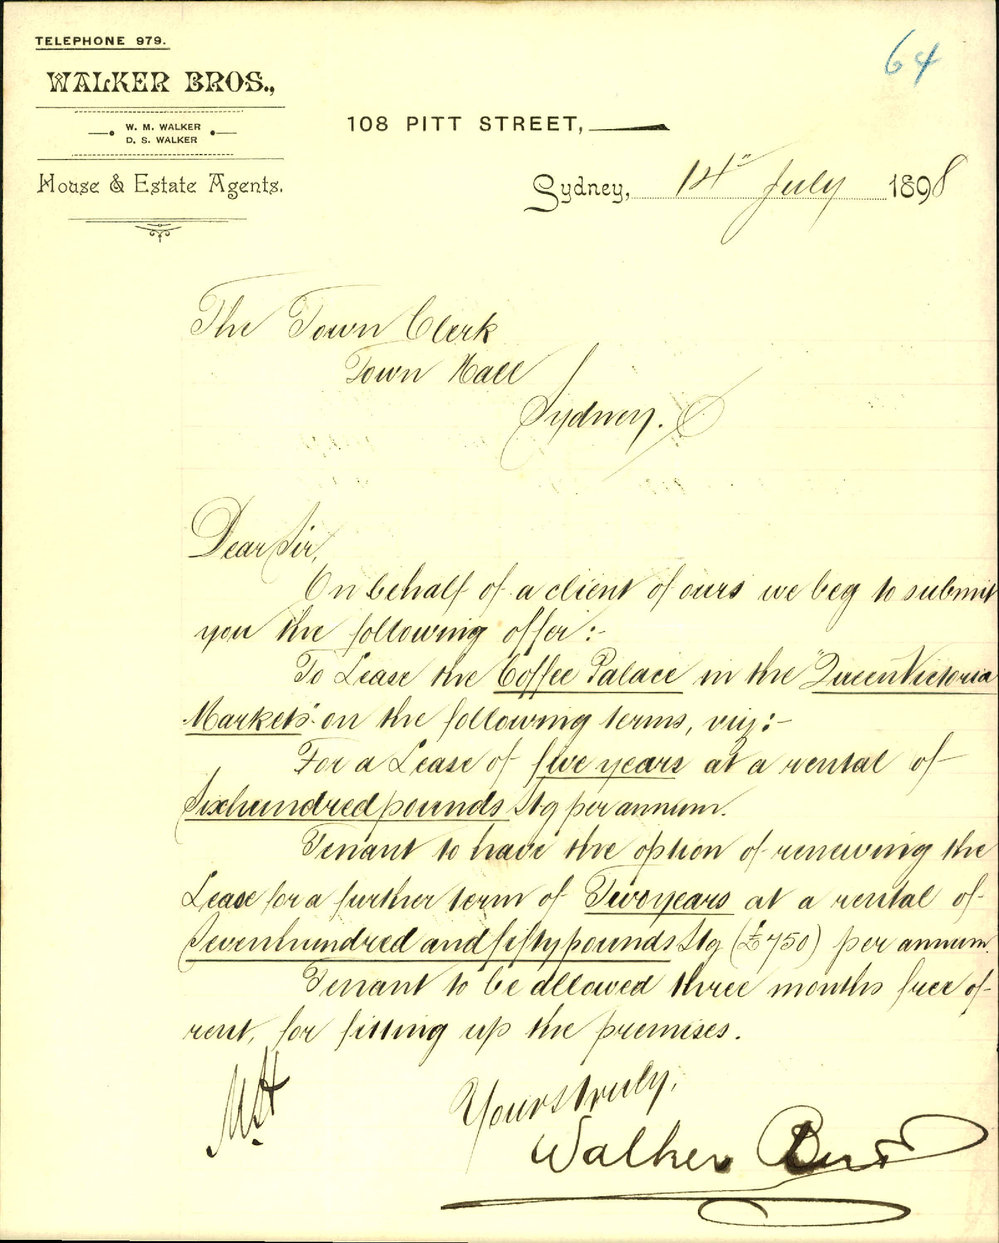 64
TELEPHONE 979.
WALKER BROS.,
W. M. WALKER
D. S. WALKER
House & Estate Agents.
108 PITT STREET,
Sydney, 14th July 1898
The Town Clerk
Town Hall
Sydney.
Dear Sir,
On behalf of a client of ours we beg to submit
you the following offer:-
To Lease the Coffee Palace in the "Queen Victoria
Markets" on the following terms, viz:-
For a Lease of five years at a rental of
Six hundred pounds Stg per annum.
Tenant to have the option of renewing the
Lease for a further term of Two years at a rental of
Seven hundred and fifty pounds Stg (£750) per annum.
Tenant to be allowed three months free of
rent, for fitting up the premises.
Yours truly,
Walker Bros